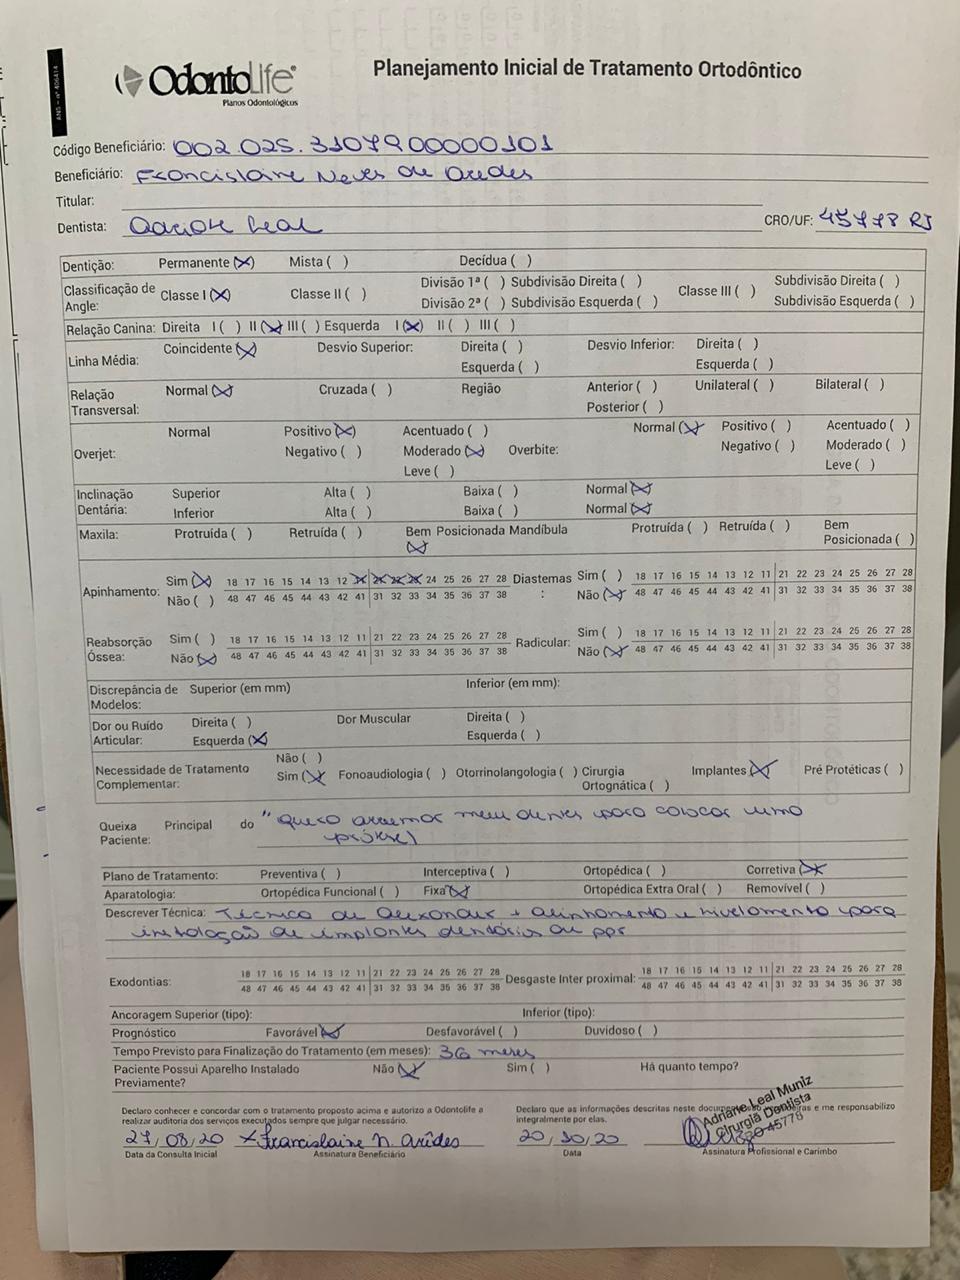 ANS - nº 406414
OdontoLife®
Planos Odontológicos
Planejamento Inicial de Tratamento Ortodôntico
Código Beneficiário: 002.025.31079.00000101
Beneficiário: Francislaine Neves de Aredes
Titular:
Dentista: Adriane Leal CRO/UF: 45778 RJ
Dentição: Permanente (X) Mista ( ) Decídua ( )
Classificação de Angle: Classe I (X) Classe II ( ) Divisão 1ª ( ) Subdivisão Direita ( ) Classe III ( ) Subdivisão Direita ( )
Divisão 2ª ( ) Subdivisão Esquerda ( ) Subdivisão Esquerda ( )
Relação Canina: Direita I ( ) II (X) III ( ) Esquerda I (X) II ( ) III ( )
Linha Média: Coincidente (X) Desvio Superior: Direita ( ) Desvio Inferior: Direita ( )
Esquerda ( ) Esquerda ( )
Relação Transversal: Normal (X) Cruzada ( ) Região Anterior ( ) Unilateral ( ) Bilateral ( )
Posterior ( )
Overjet: Normal Positivo (X) Acentuado ( ) Overbite: Normal (X) Positivo ( ) Acentuado ( )
Negativo ( ) Moderado (X) Negativo ( ) Moderado ( )
Leve ( ) Leve ( )
Inclinação Dentária: Superior Alta ( ) Baixa ( ) Normal (X)
Inferior Alta ( ) Baixa ( ) Normal (X)
Maxila: Protruída ( ) Retruída ( ) Bem Posicionada (X) Mandíbula Protruída ( ) Retruída ( ) Bem Posicionada ( )
Apinhamento: Sim (X) 18 17 16 15 14 13 12 11 21 22 23 24 25 26 27 28 Diastemas: Sim ( ) 18 17 16 15 14 13 12 11 21 22 23 24 25 26 27 28
Não ( ) 48 47 46 45 44 43 42 41 31 32 33 34 35 36 37 38 Não (X) 48 47 46 45 44 43 42 41 31 32 33 34 35 36 37 38
Reabsorção Óssea: Sim ( ) 18 17 16 15 14 13 12 11 21 22 23 24 25 26 27 28 Radicular: Sim ( ) 18 17 16 15 14 13 12 11 21 22 23 24 25 26 27 28
Não (X) 48 47 46 45 44 43 42 41 31 32 33 34 35 36 37 38 Não (X) 48 47 46 45 44 43 42 41 31 32 33 34 35 36 37 38
Discrepância de Modelos: Superior (em mm) Inferior (em mm):
Dor ou Ruído Articular: Direita ( ) Dor Muscular Direita ( )
Esquerda (X) Esquerda ( )
Necessidade de Tratamento Complementar: Não ( )
Sim (X) Fonoaudiologia ( ) Otorrinolangologia ( ) Cirurgia Ortognática ( ) Implantes (X) Pré Protéticas ( )
Queixa Principal do Paciente: "Quero arrumar meu dentes para colocar uma
prótese)
Plano de Tratamento: Preventiva ( ) Interceptiva ( ) Ortopédica ( ) Corretiva (X)
Aparatologia: Ortopédica Funcional ( ) Fixa (X) Ortopédica Extra Oral ( ) Removível ( )
Descrever Técnica: Técnica de Alexander + alinhamento e nivelamento para
instalação de implantes dentários ou ppr
Exodontias: 18 17 16 15 14 13 12 11 21 22 23 24 25 26 27 28 Desgaste Inter proximal: 18 17 16 15 14 13 12 11 21 22 23 24 25 26 27 28
48 47 46 45 44 43 42 41 31 32 33 34 35 36 37 38 48 47 46 45 44 43 42 41 31 32 33 34 35 36 37 38
Ancoragem Superior (tipo): Inferior (tipo):
Prognóstico Favorável (X) Desfavorável ( ) Duvidoso ( )
Tempo Previsto para Finalização do Tratamento (em meses): 36 meses
Paciente Possui Aparelho Instalado Previamente? Não (X) Sim ( ) Há quanto tempo?
Declaro conhecer e concordar com o tratamento proposto acima e autorizo a Odontolife a
realizar auditoria dos serviços executados sempre que julgar necessário.
Declaro que as informações descritas neste documento são verdadeiras e me responsabilizo
integralmente por elas.
Adriane Leal Muniz
Cirurgiã Dentista
CRO 45778
27/08/20 X Francislaine N. Arêdes 20/10/20
Data da Consulta Inicial Assinatura Beneficiário Data Assinatura Profissional e Carimbo